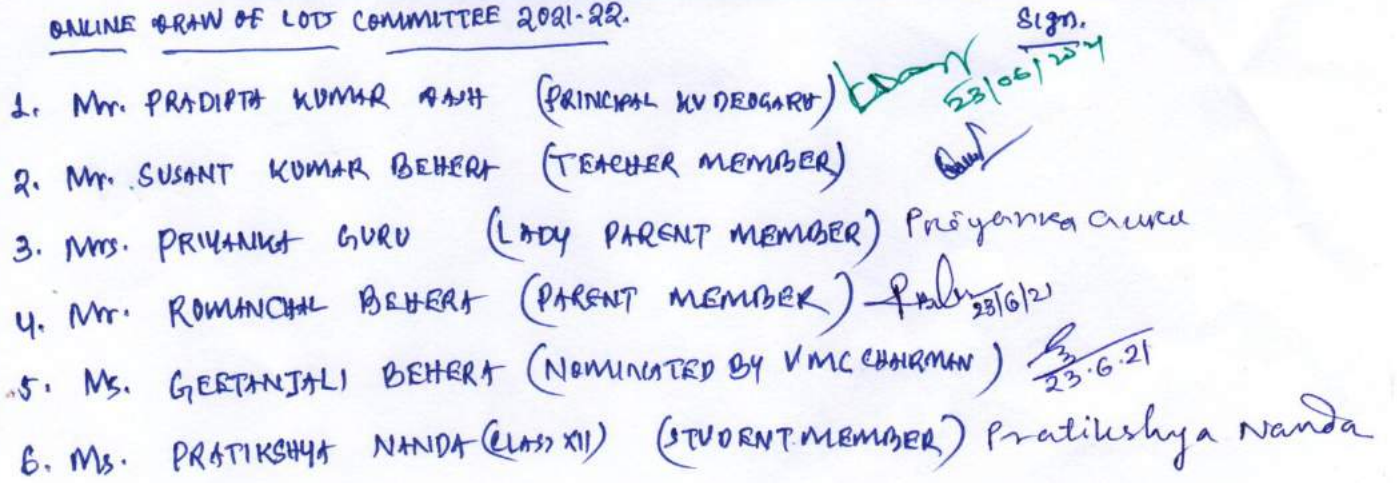 ONLINE DRAW OF LOTS COMMITTEE 2021-22.
Sign.
1. Mr. PRADIPTA KUMAR DASH (PRINCIPAL KV DEOGARH) 23/06/2021
2. Mr. SUSANT KUMAR BEHERA (TEACHER MEMBER)
3. Mrs. PRIYANKA GURU (LADY PARENT MEMBER) Priyanka Guru
4. Mr. ROMANCHAL BEHERA (PARENT MEMBER) 23/6/21
5. Ms. GEETANJALI BEHERA (NOMINATED BY VMC CHAIRMAN) 23.6.21
6. Ms. PRATIKSHYA NANDA (CLASS XII) (STUDENT MEMBER) Pratikshya Nanda